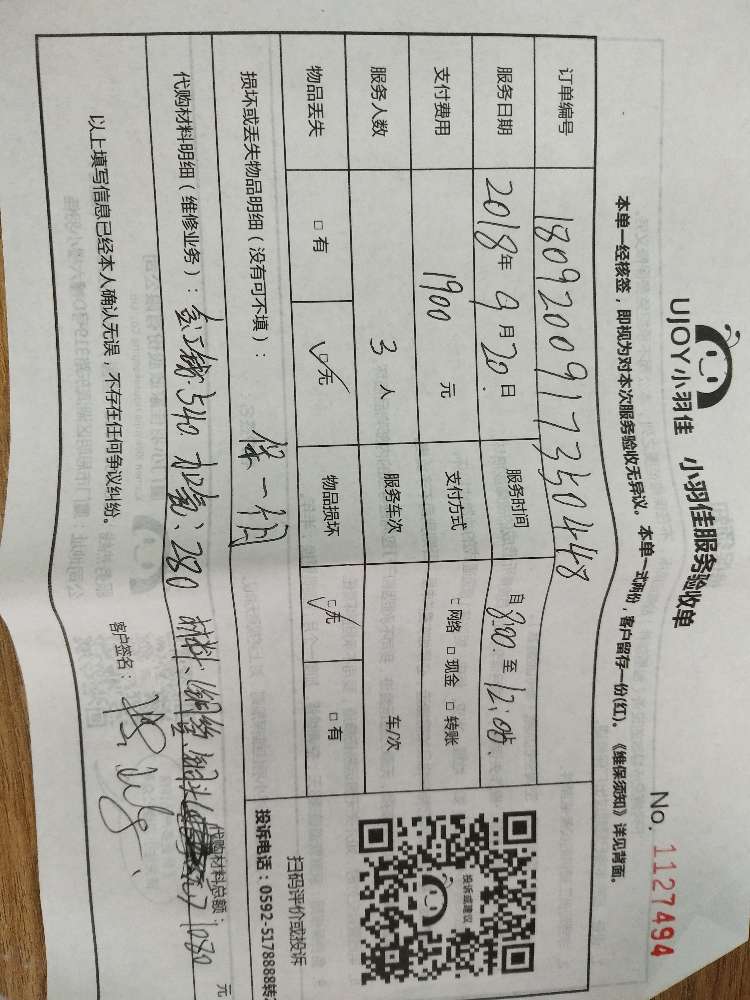 UJOY小羽佳 小羽佳服务验收单
No. 1127494
本单一经核签，即视为对本次服务验收无异议。本单一式两份，客户留存一份(红)。《维保须知》详见背面。
订单编号 18092009173504448
服务日期 2018年9月20日 服务时间 自8:00至12:00
支付费用 1900元 支付方式 □网络 □现金 □转账
服务人数 3人 服务车次 车/次
物品丢失 □有 □无 物品损坏 □无 □有
投诉或建议
扫码评价或投诉
投诉电话：0592-5178888转
损坏或丢失物品明细（没有可不填）： 保一个月
代购材料明细（维修业务）： 540 加氟：280
代购材料总额： 1080 元
以上填写信息已经本人确认无误，不存在任何争议纠纷。 客户签名：